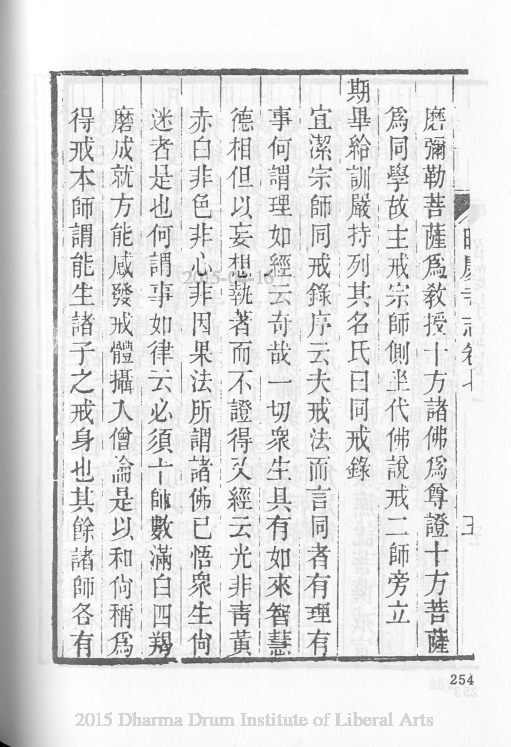 昭慶寺志卷七
五
磨彌勒菩薩爲敎授十方諸佛爲尊證十方菩薩
爲同學故主戒宗師側坐代佛說戒二師旁立
期畢給訓嚴持列其名氏曰同戒錄
宜潔宗師同戒錄序云夫戒法而言同者有理有
事何謂理如經云奇哉一切衆生具有如來智慧
德相但以妄想執著而不證得又經云光非靑黃
赤白非色非心非因果法所謂諸佛已悟衆生尙
迷者是也何謂事如律云必須十師數滿白四羯
磨成就方能感發戒體攝入僧淪是以和尙稱爲
得戒本師謂能生諸子之戒身也其餘諸師各有
2015-03-16
254
2015 Dharma Drum Institute of Liberal Arts